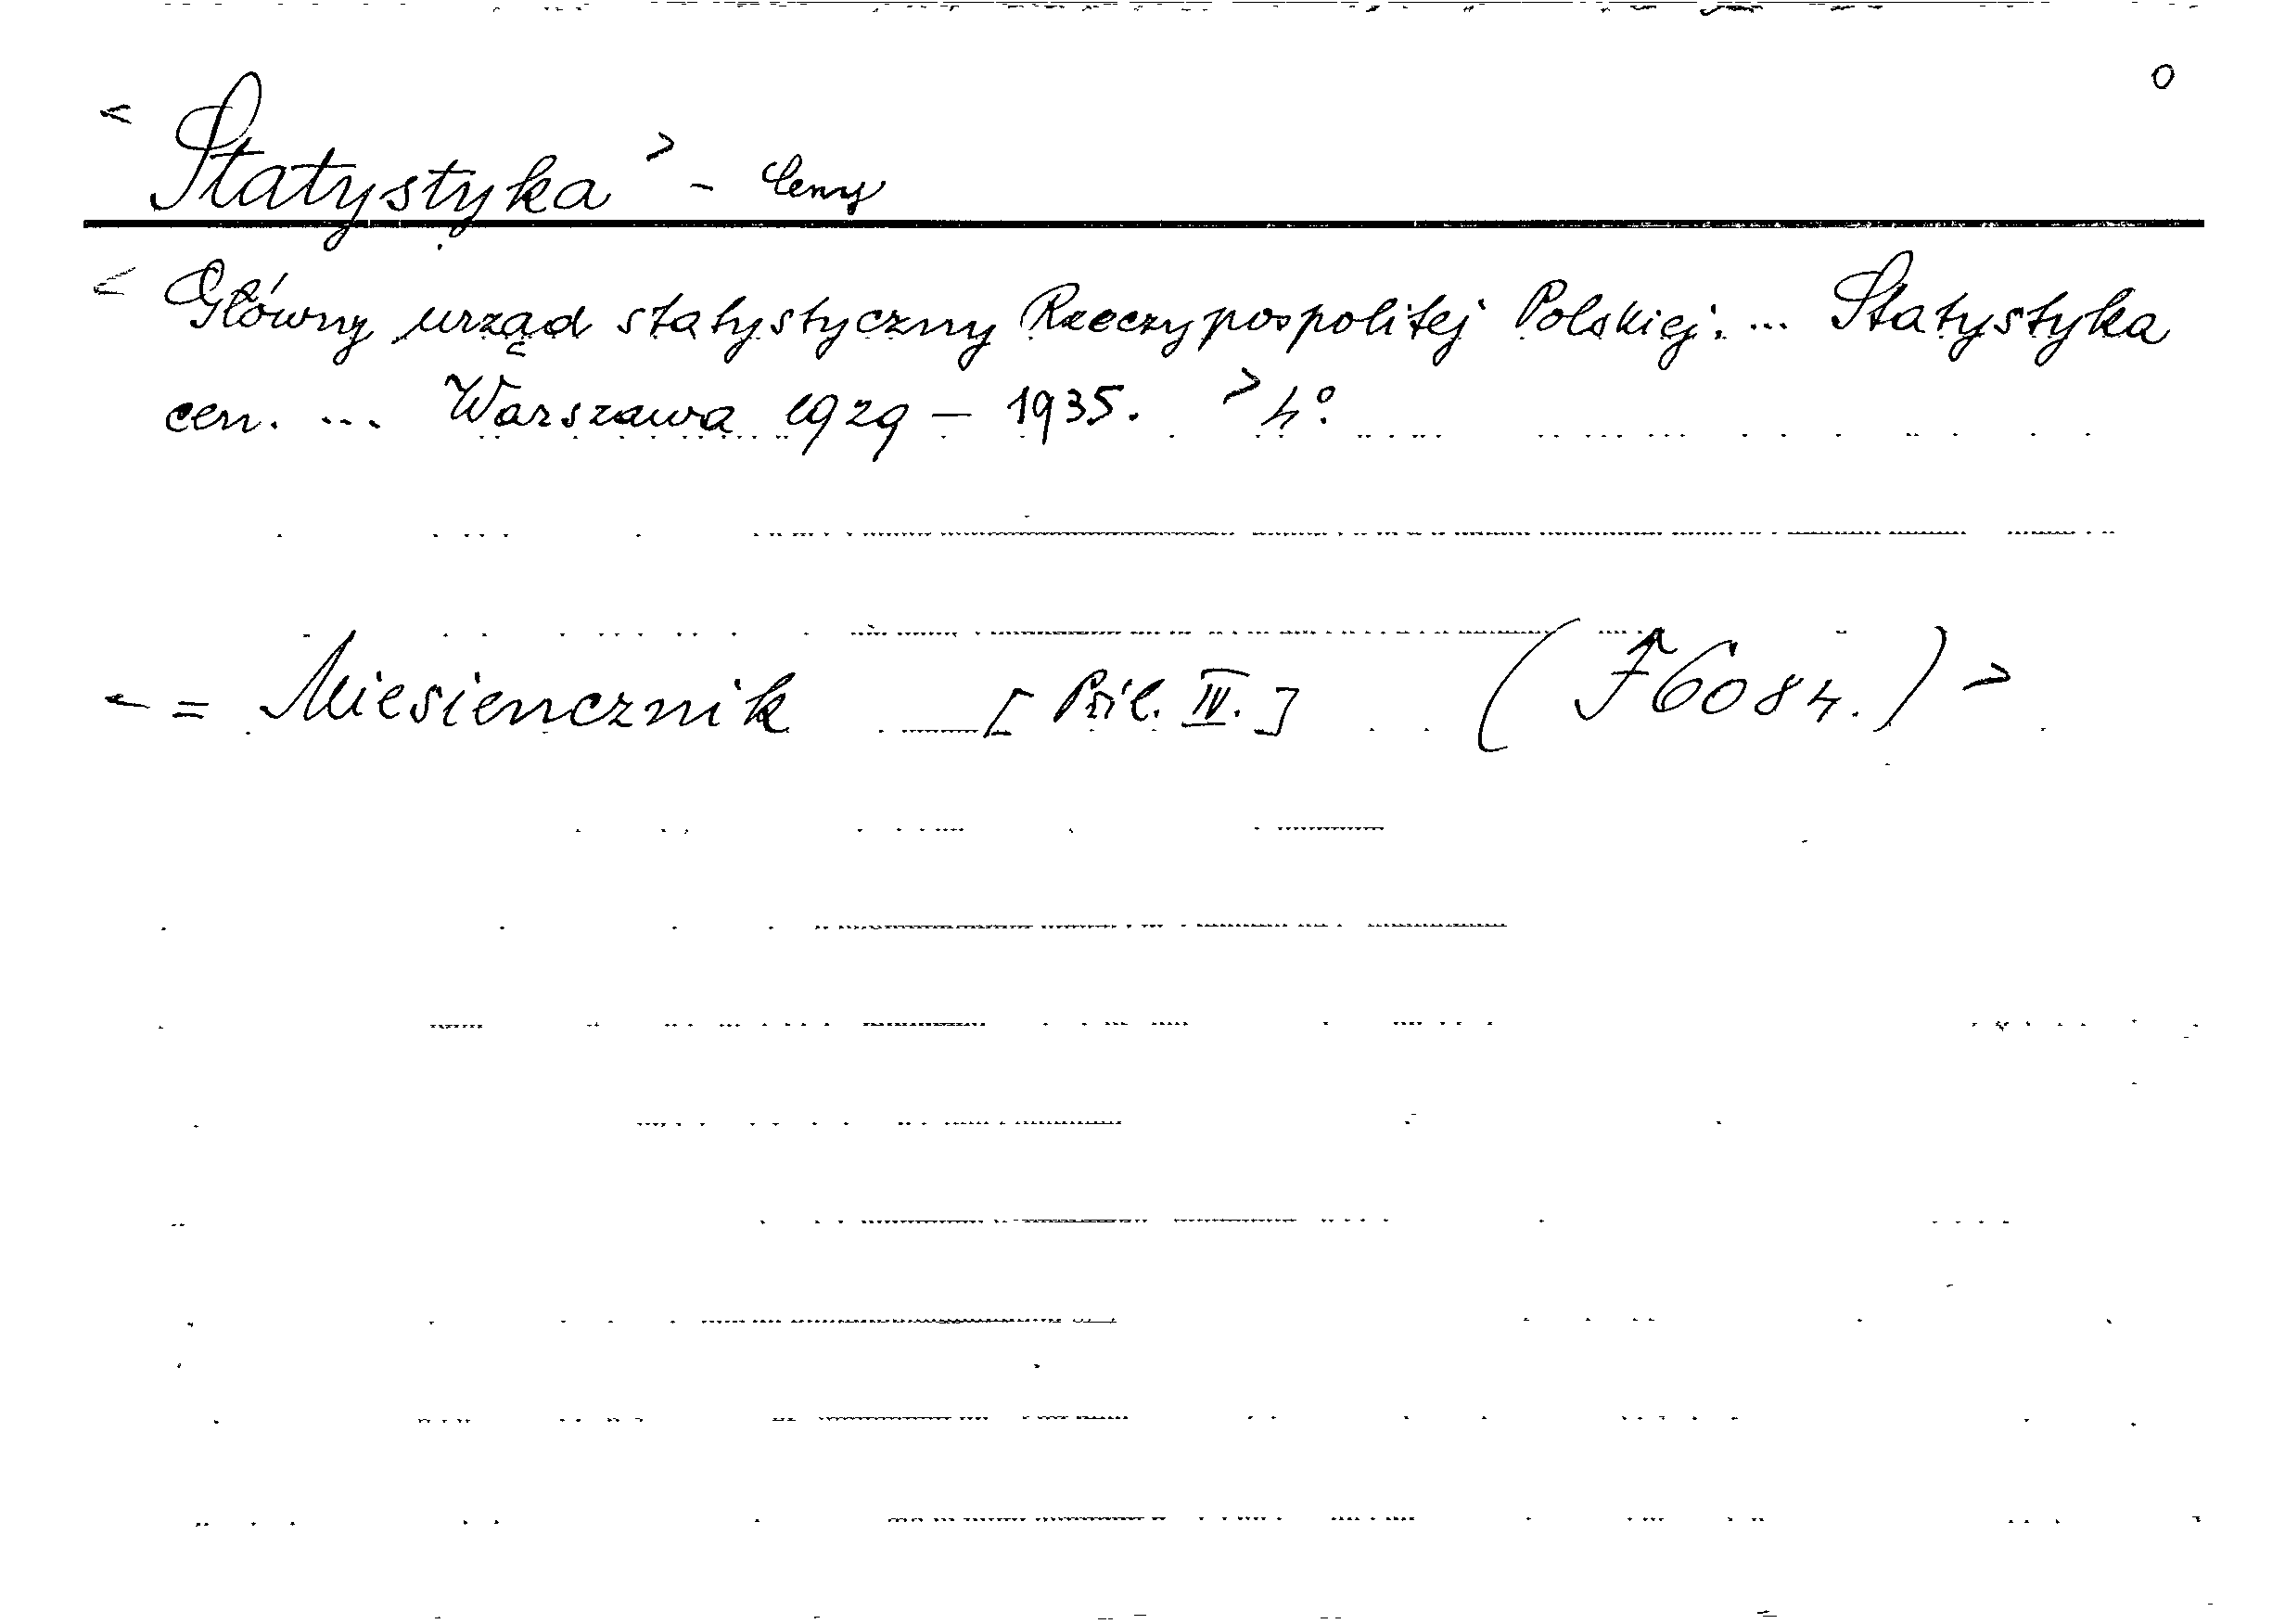 o
< Statystyka > - Ceny
< Główny urząd statystyczny Rzeczypospolitej Polskiej. ... Statystyka
cen. ... Warszawa 1929 – 1935. > 4°.
< = Miesiencznik [Příl. IV.] (F 6084.) >